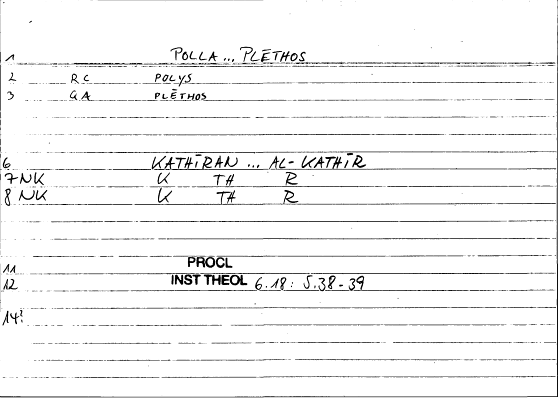 1 POLLA ... PLĒTHOS
2 RC POLYS
3 GA PLĒTHOS
6 KATHĪRAN ... AL-KATHĪR
7 NK K TH R
8 NK K TH R
11 PROCL
12 INST THEOL 6.18: 5.38-39
14?